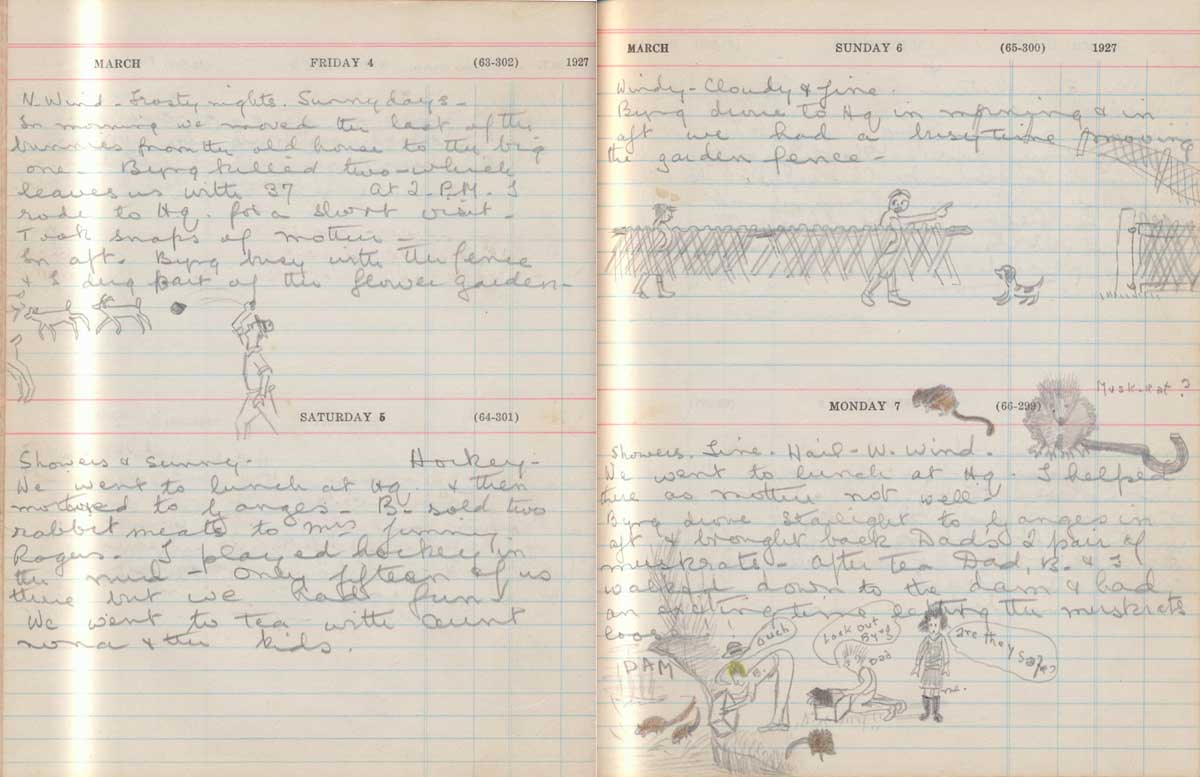 MARCH FRIDAY 4 (63-302) 1927
N. Wind - Frosty nights. Sunny days -
In morning we moved the last of the
bunnies from the old house to the big
one - Byng killed two - which
leaves us with 37 at 2. P.M. I
rode to Hq. for a short visit -
Took snaps of mother -
In aft. Byng busy with the fence
& I dug part of the flower garden -
SATURDAY 5 (64-301)
Showers & sunny. Hockey -
We went to lunch at Hq. & then
motored to Ganges - B. sold two
rabbit meats to Mrs Jimmy
Rogers. I played hockey in
the mud - only fifteen of us
there but we had fun -
We went to tea with Aunt
Nona & the kids.
MARCH SUNDAY 6 (65-300) 1927
Windy - Cloudy & fine.
Byng drove to Hq in morning & in
aft we had a busy time moving
the garden fence -
Musk-rat?
MONDAY 7 (66-299)
Showers. Fine. Hail - W. Wind.
We went to lunch at Hq. I helped
there as mother not well -
Byng drove Starlight to Ganges in
aft & brought back Dad's 2 pair of
muskrats - After tea Dad, B. & I
walked down to the dam & had
an exciting time letting the muskrats
loose
DAM
Ouch
B.
Look out Byng
Dad
are they safe?
me.